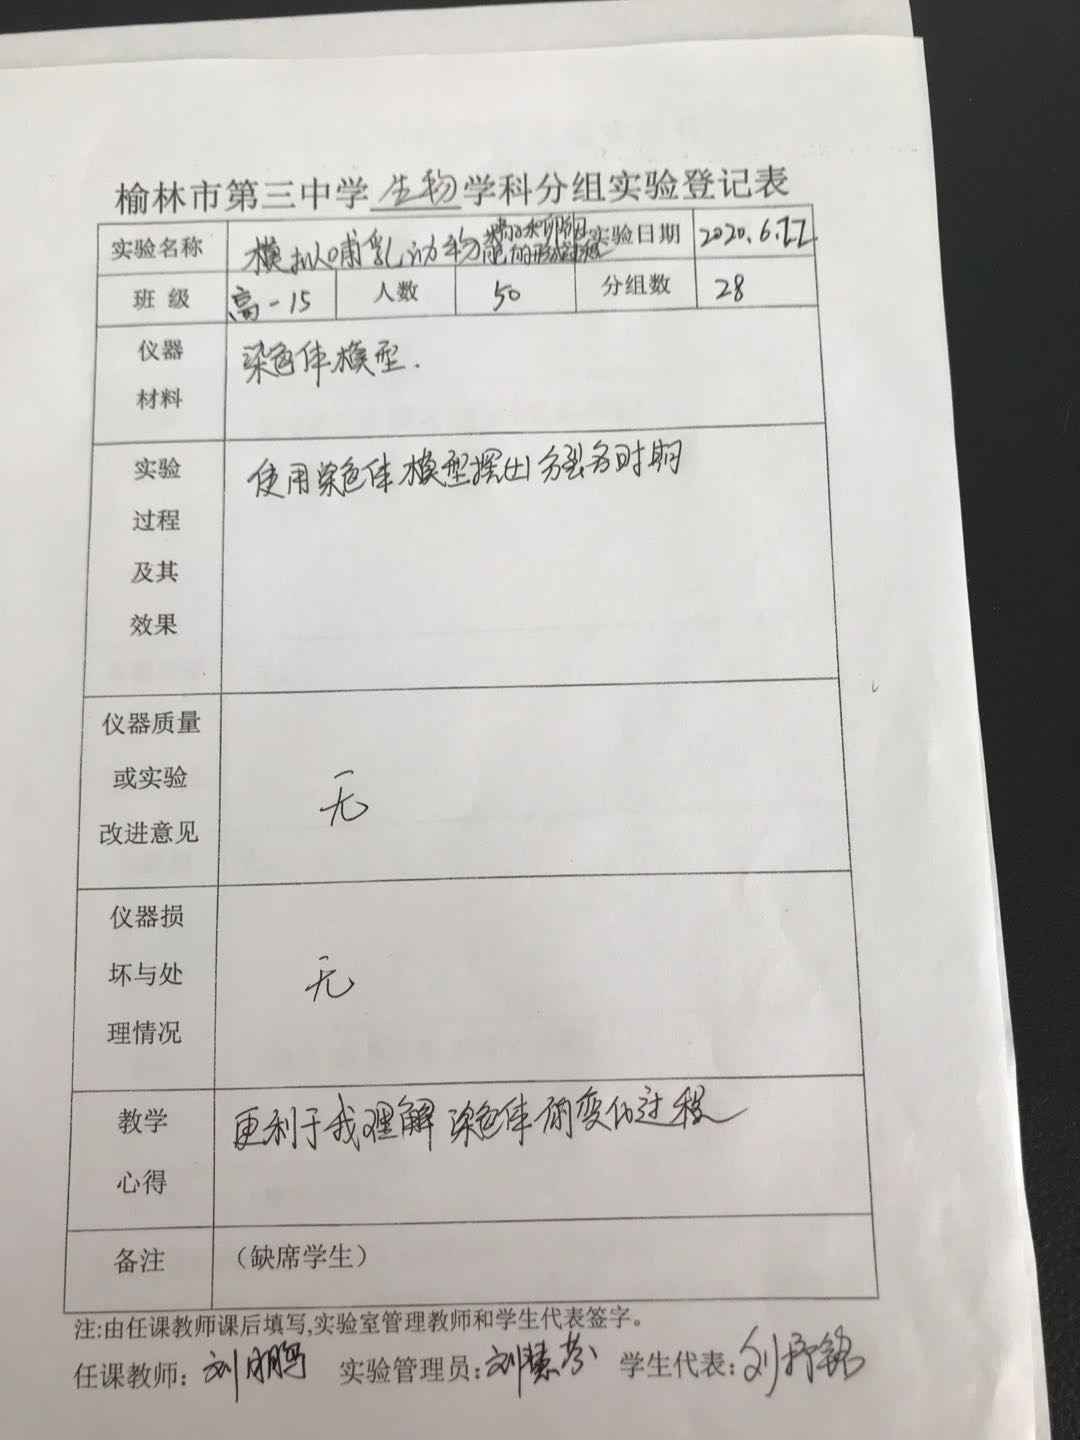 榆林市第三中学生物学科分组实验登记表
实验名称 模拟哺乳动物精子和卵细胞的形成过程 实验日期 2020.6.22
班 级 高一15 人数 50 分组数 28
仪器
材料
染色体模型.
实验
过程
及其
效果
使用染色体模型摆出分裂各时期
仪器质量
或实验
改进意见
无
仪器损
坏与处
理情况
无
教学
心得
更利于我理解染色体的变化过程
备注
(缺席学生)
注:由任课教师课后填写,实验室管理教师和学生代表签字。
任课教师: 刘 实验管理员: 刘慧芬 学生代表: 刘